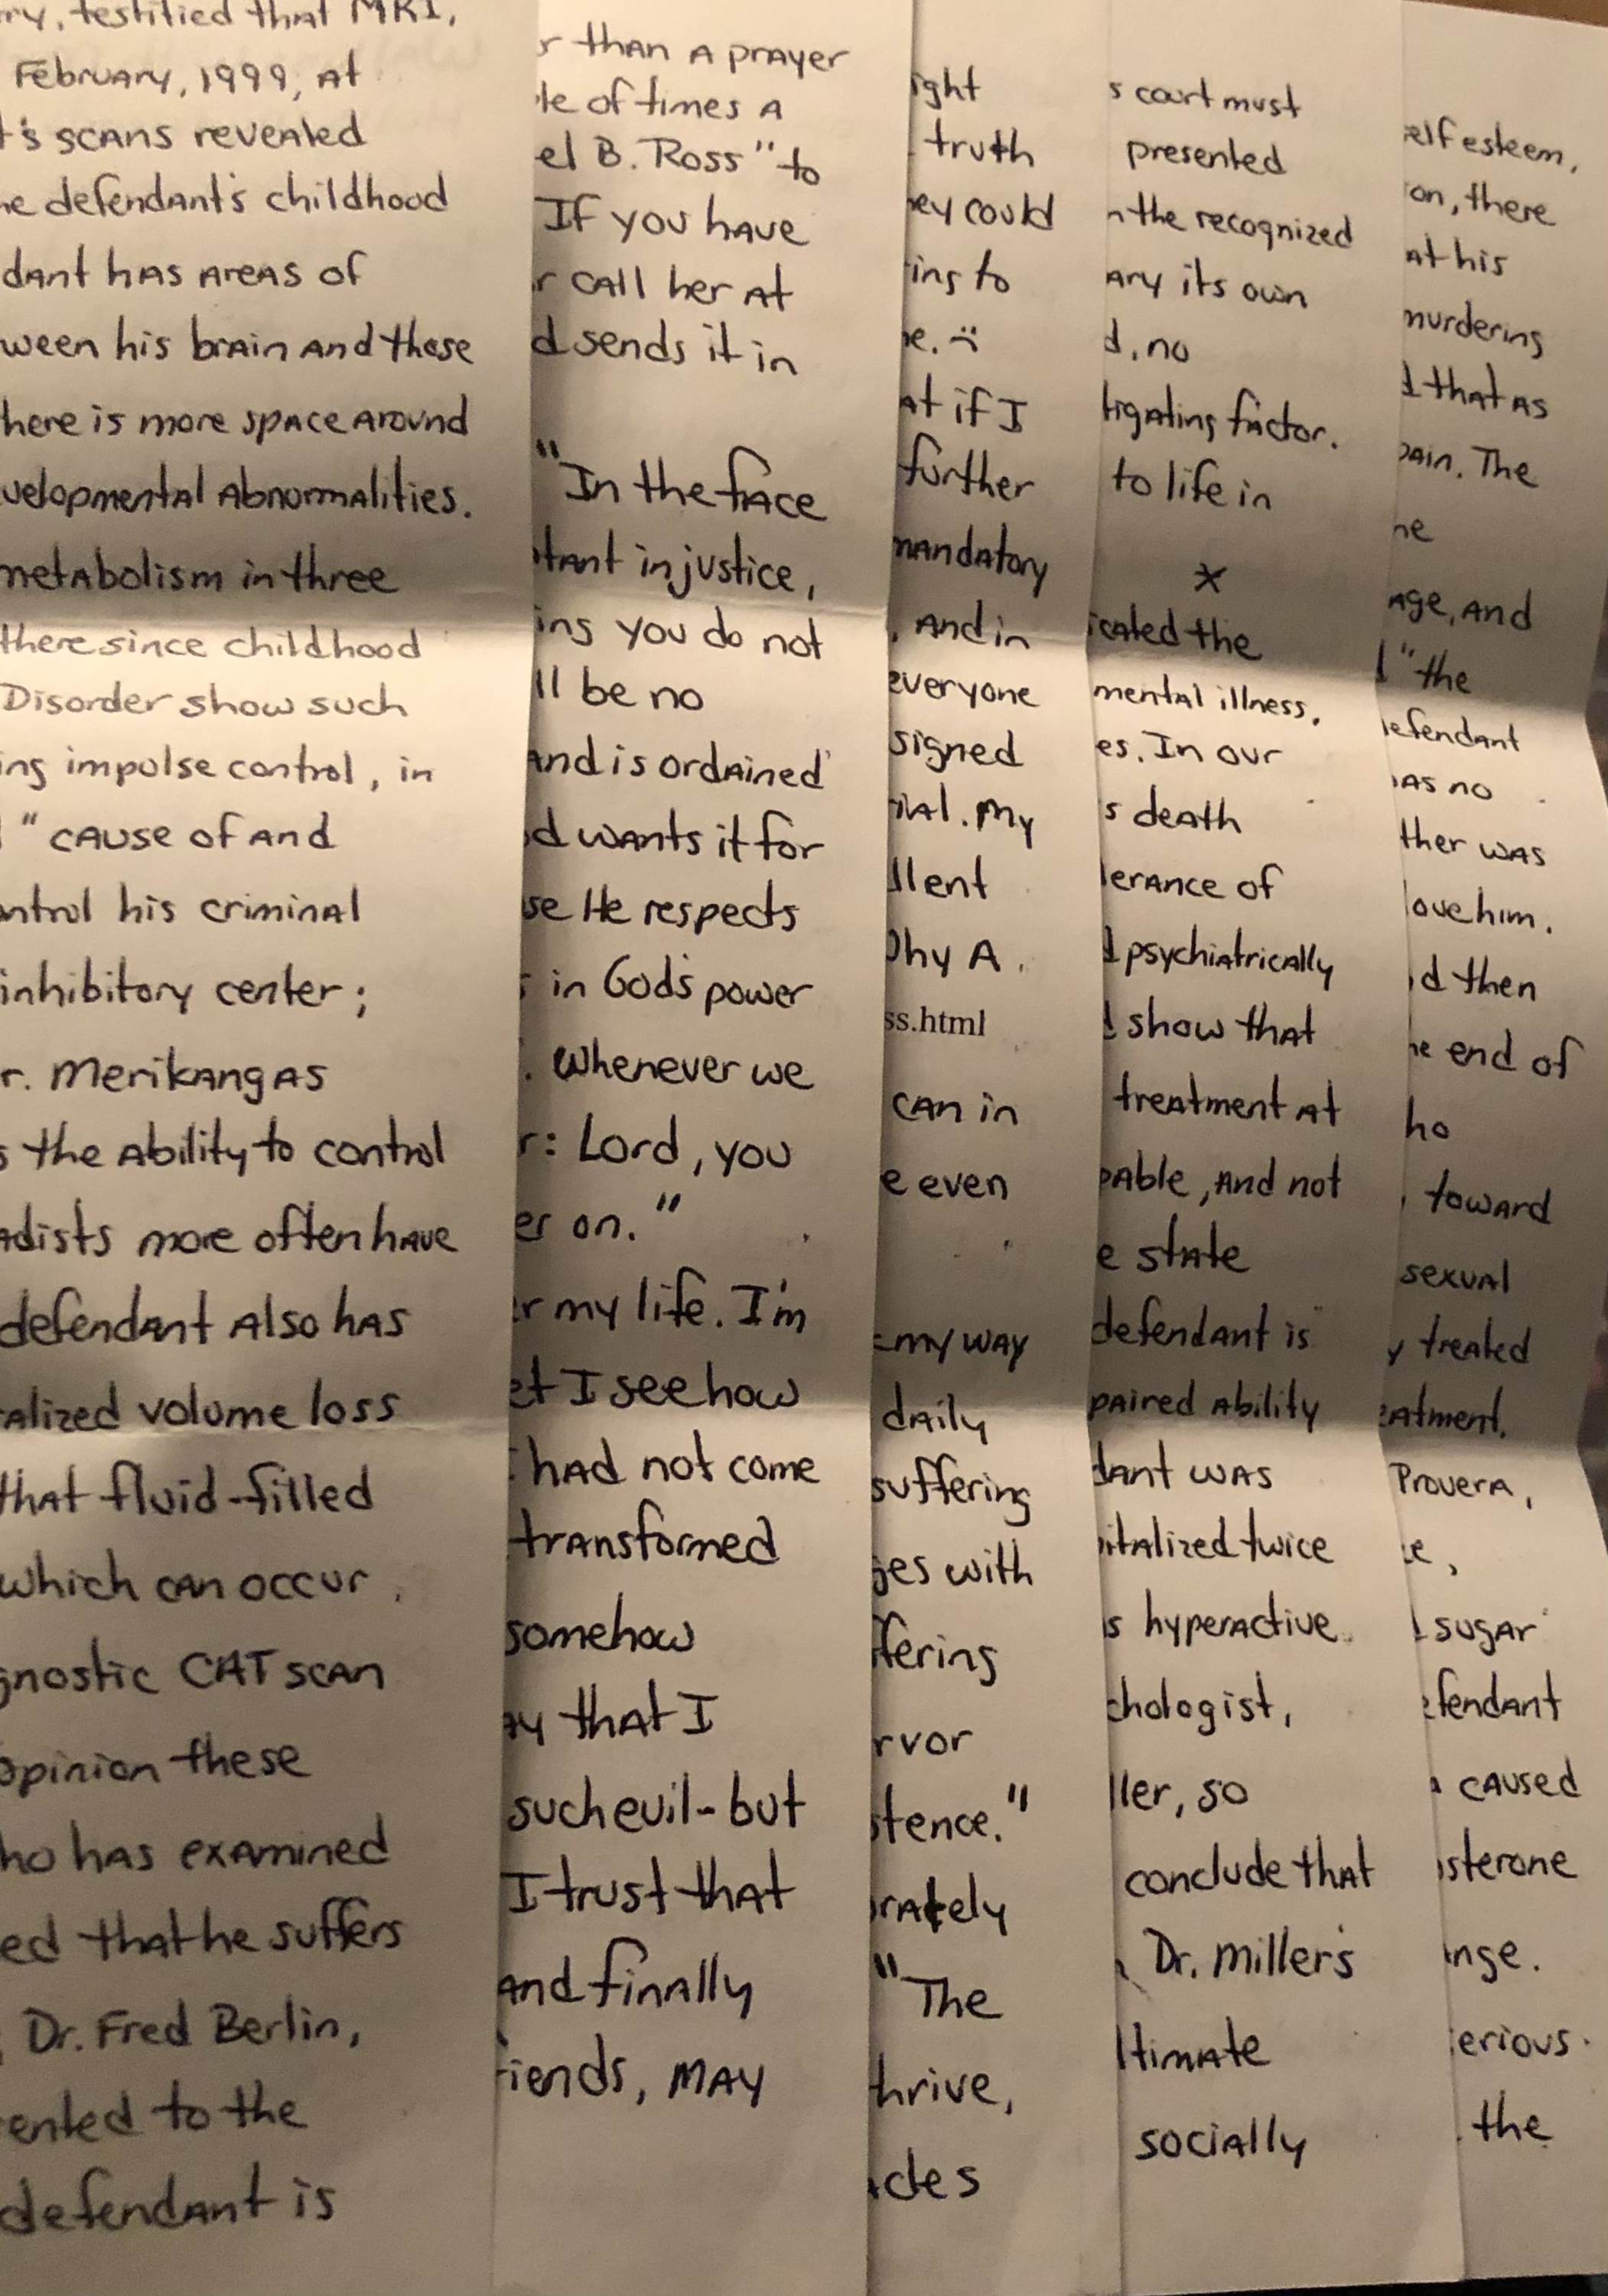 ry, testified that MRI,
February, 1999, at
t's scans revealed
he defendant's childhood
dant has areas of
ween his brain and those
here is more space around
velopmental abnormalities.
metabolism in three
there since childhood
Disorder show such
ing impulse control, in
" cause of and
ontrol his criminal
inhibitory center;
r. Merikangas
s the ability to control
adists more often have
defendant also has
alized volume loss
that fluid-filled
which can occur
gnostic CAT scan
opinion these
ho has examined
ed that he suffers
Dr. Fred Berlin,
ented to the
defendant is
r than a prayer
le of times a
el B. Ross" to
If you have
r call her at
d sends it in
"In the face
tant injustice,
ing you do not
ll be no
and is ordained
d wants it for
se He respects
in God's power
. Whenever we
r: Lord, you
er on."
er my life. I'm
et I see how
had not come
transformed
somehow
ay that I
such evil - but
I trust that
and finally
iends, may
ight
truth
hey could
ing to
e. :-(
at if I
further
mandatory
, and in
everyone
signed
rial. My
llent
Why A
ss.html
can in
e even
my way
daily
suffering
ges with
fering
rvor
stence."
rately
"The
hrive,
cles
s court must
presented
n the recognized
ary its own
d, no
tigating factor.
to life in
*
icated the
mental illness.
es. In our
s death
lerance of
d psychiatrically
d show that
treatment at
pable, and not
e state
defendant is
paired ability
dant was
pitalized twice
s hyperactive
chologist,
ller, so
conclude that
Dr. Miller's
ltimate
socially
elf esteem,
on, there
at his
murdering
d that as
pain. The
he
age, and
d "the
defendant
has no
ther was
love him.
d then
he end of
ho
, toward
sexual
y treated
eatment.
Provera,
ce,
d sugar
efendant
a caused
osterone
ange.
erious
the